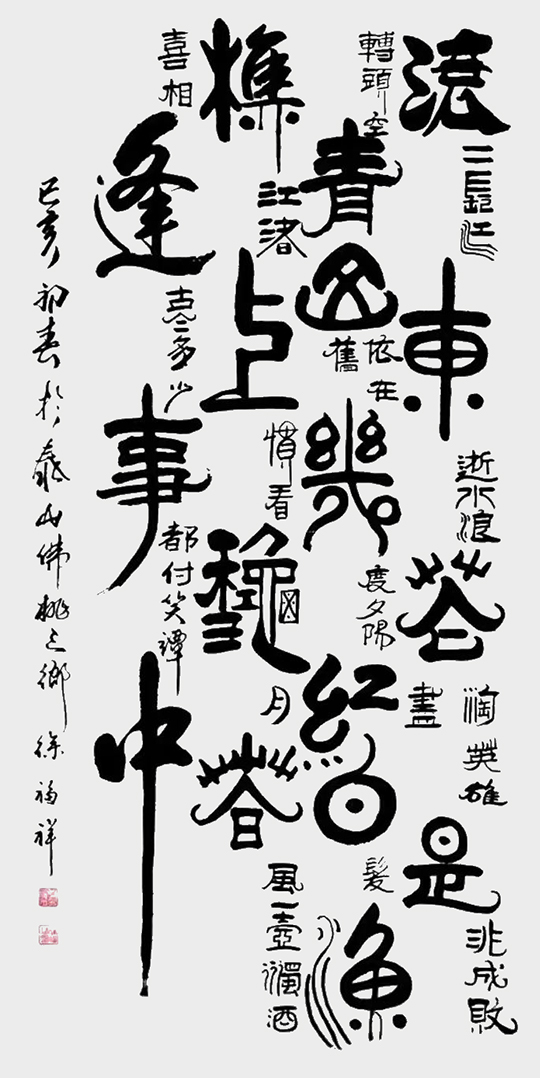 滾二長江東逝水浪花淘盡英雄是非成敗
轉頭空青山依舊在幾度夕陽紅白髮漁
樵江渚上慣看龝月春風一壺濁酒
喜相逢古今多少事都付笑譚中
己亥初春於泰山佛桃之鄉徐福祥